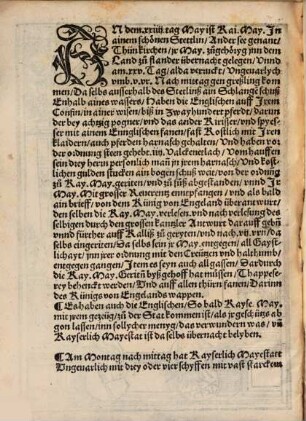 AN dem .xxiiij. tag May ist Kai. May. In
ainem schönen Stettlin/ An der see genant/
Thünkirchen/ jr May. zůgehörig ynn dem
Land zů flander übernacht gelegen/ Vnnd
am .xxv. Tag/ alda verruckt/ Vngenarlych
vmb .v. vr. Nach mittag gen greßling kom
men/ Da selbs ausserhalb des Stetlinß ain Schlangē schuß
Enhalb aines wassers/ Haben die Englischen auff Jrem
Confin/ in ainer wysen/ biß in zway hundert pferdt/ darun
der bey achtzig pogner/ vnd das ander Kirser/ vnd spyes-
ser mit ainem Enngllischen fanen/ fast Kostlich mit Jren
klaidern/ auch pferden harnasch gehalten/ Vnd haben vor
der ordnung steen gehebt .iiij. Valckenerlach/ Von hauffen
sein drey herrn personlich mañ in jrem harnasch/ Vnd kost-
lichen gulden stucken ain bogen schuß wei/ von der ordnung
zů Kay. May. geriten/ vnd zů fůß abgestanden/ vnnd Jr
May. Mit grosser Reuerentz ennempfangen/ vnd als bald
ain brieff/ von dem Künig von Engeland überantwurt/
den selben die Kay. May. verlesen/ vnd nach verlesung des
selbigen durch den grossen kantzler Antwurt darauff gebñ
vnnd fürther auff Kallis zů geryten/ vnd nach .vij. vrn/ da
selbs eingeriten/ Da selbs sein jr May. entgegen/ all Gayst-
lichayt/ ynn jrer ordnung mit den Creützen vnd halthumb/
entgegen gangen/ Jtem es seyn auch all gassen/ So durch die
Kay. May. Gerittē byß gehoff hat müssen/ Thappesse-
rey behenckt werden/ Vnd auff allen thürn fanen/ Darinn
des Künigs von Engelands wappen.
¶ Es haben auch die Englischen/ So bald Kayse. May.
mit jrem gezeüg/ zů der Stat kommen ist/ als jr geschütz ab-
gon lassen/ inn sollycher menyg/ das verwundern was/ vñ
Kayserlich Mayestat ist da selbs übernacht belyben.
¶ Am Montag nach mittag hat Kayserlich Mayestatt
Vngenarlich mit drey oder vier schyffen mit vast starckem